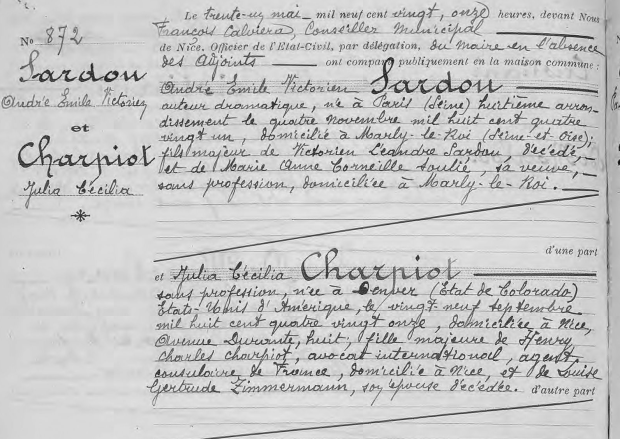 Le trente-un mai mil neuf cent vingt, onze heures, devant Nous
No 872
François Calviera, Conseiller Municipal
de Nice, Officier de l'Etat-Civil, par délégation, du Maire en l'absence
des Adjoints ont comparu publiquement en la maison commune :
Sardon
André Emile Victorien
et
Charpiot
Julia Cécilia
André Emile Victorien Sardou
auteur dramatique, né à Paris (Seine) huitième arron-
dissement le quatre novembre mil huit cent quatre
vingt un, domicilié à Marly-le-Roi (Seine-et-Oise);
fils majeur de Victorien Léandre Sardou, décédé,
et de Marie Anne Corneille Soulié, sa veuve,
sans profession, domiciliée à Marly-le-Roi.
d'une part
et Julia Cécilia Charpiot
sans profession, née à Denver (Etat de Colorado)
Etats-Unis d'Amérique, le vingt neuf septembre
mil huit cent quatre vingt onze, domiciliée à Nice,
Avenue Durante, huit; fille majeure de Henry
Charles Charpiot, avocat international, agent
consulaire de France, domicilié à Nice, et de Louise
Gertrude Zimmermann, son épouse décédée. d'autre part